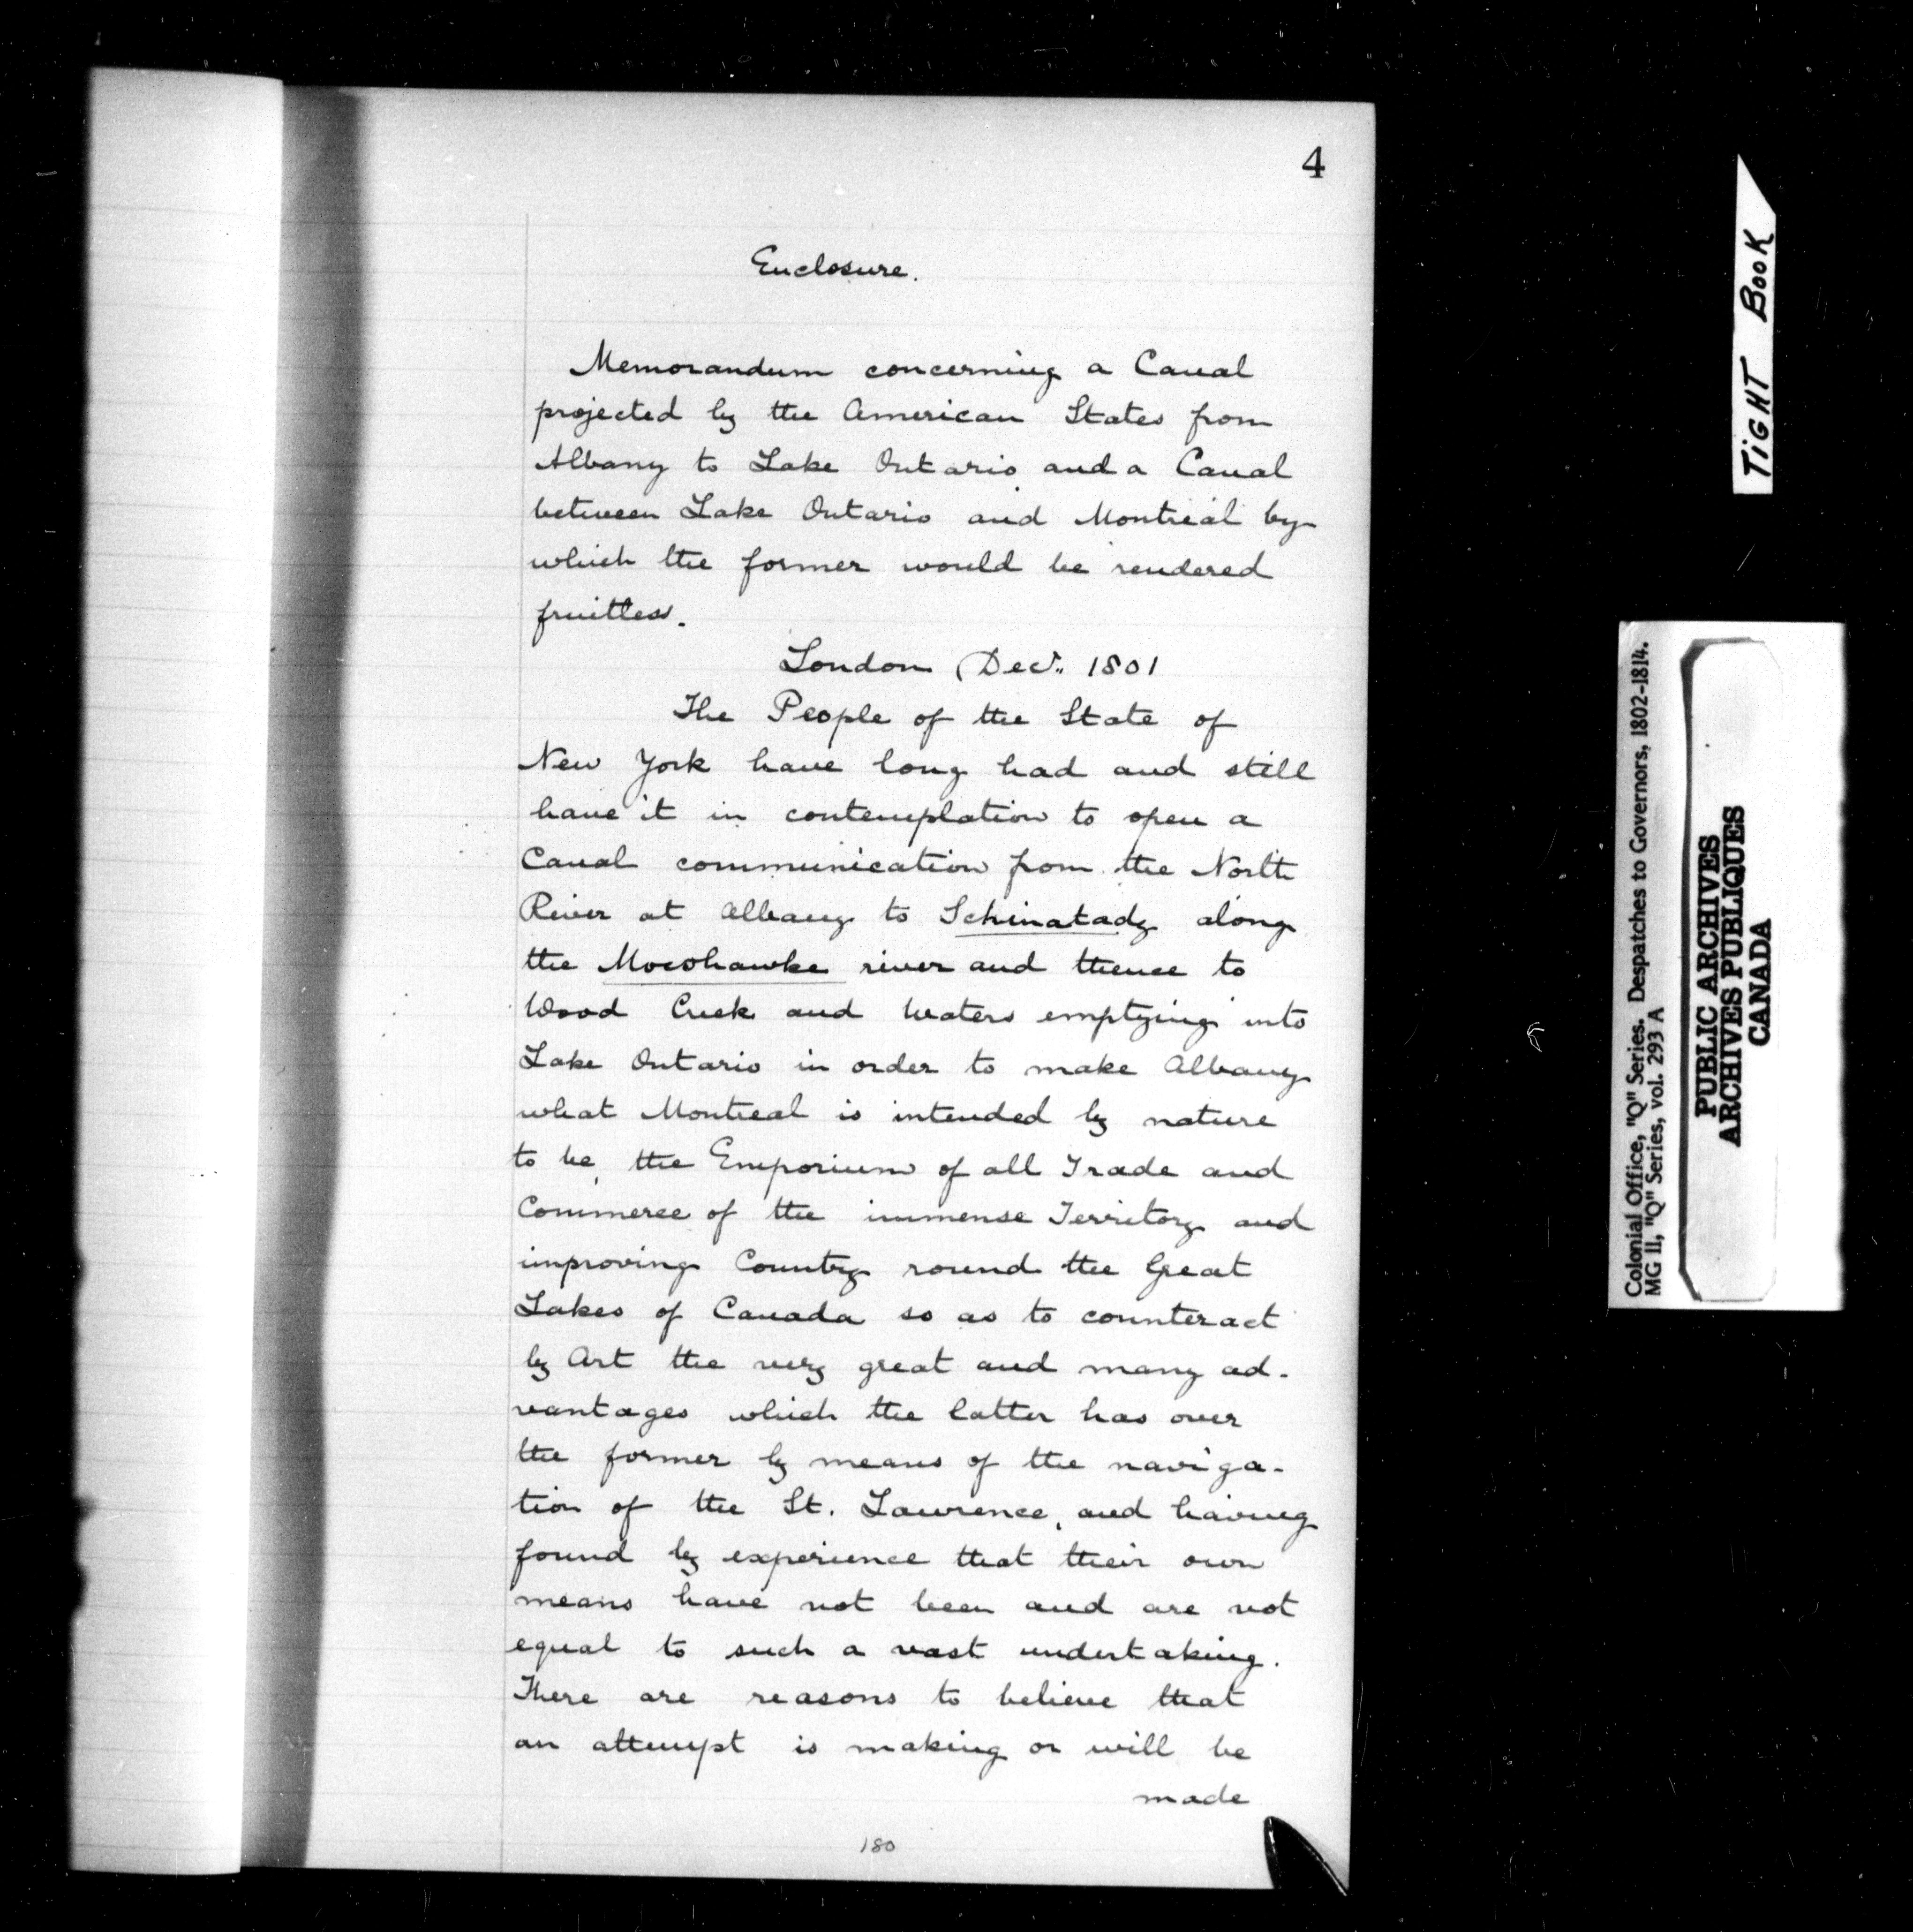 4
Enclosure.
Memorandum concerning a Canal
projected by the American States from
Albany to Lake Ontario and a Canal
between Lake Ontario and Montreal by
which the former would be rendered
fruitless.
London Decr. 1801
The People of the State of
New York have long had and still
have it in contemplation to open a
Canal communication from the North
River at Albany to Schinatady along
the Mocohawke river and thence to
Wood Creek and Waters emptying into
Lake Ontario in order to make Albany
what Montreal is intended by nature
to be, the Emporium of all Trade and
Commerce of the immense Territory and
improving Country round the Great
Lakes of Canada so as to counteract
by Art the very great and many ad-
vantages which the latter has over
the former by means of the naviga-
tion of the St. Lawrence, and having
found by experience that their own
means have not been and are not
equal to such a vast undertaking.
There are reasons to believe that
an attempt is making or will be
made
180
TIGHT BOOK
Colonial Office, "Q" Series. Despatches to Governors, 1802-1814.
MG 11, "Q" Series, vol. 293 A
PUBLIC ARCHIVES
ARCHIVES PUBLIQUES
CANADA